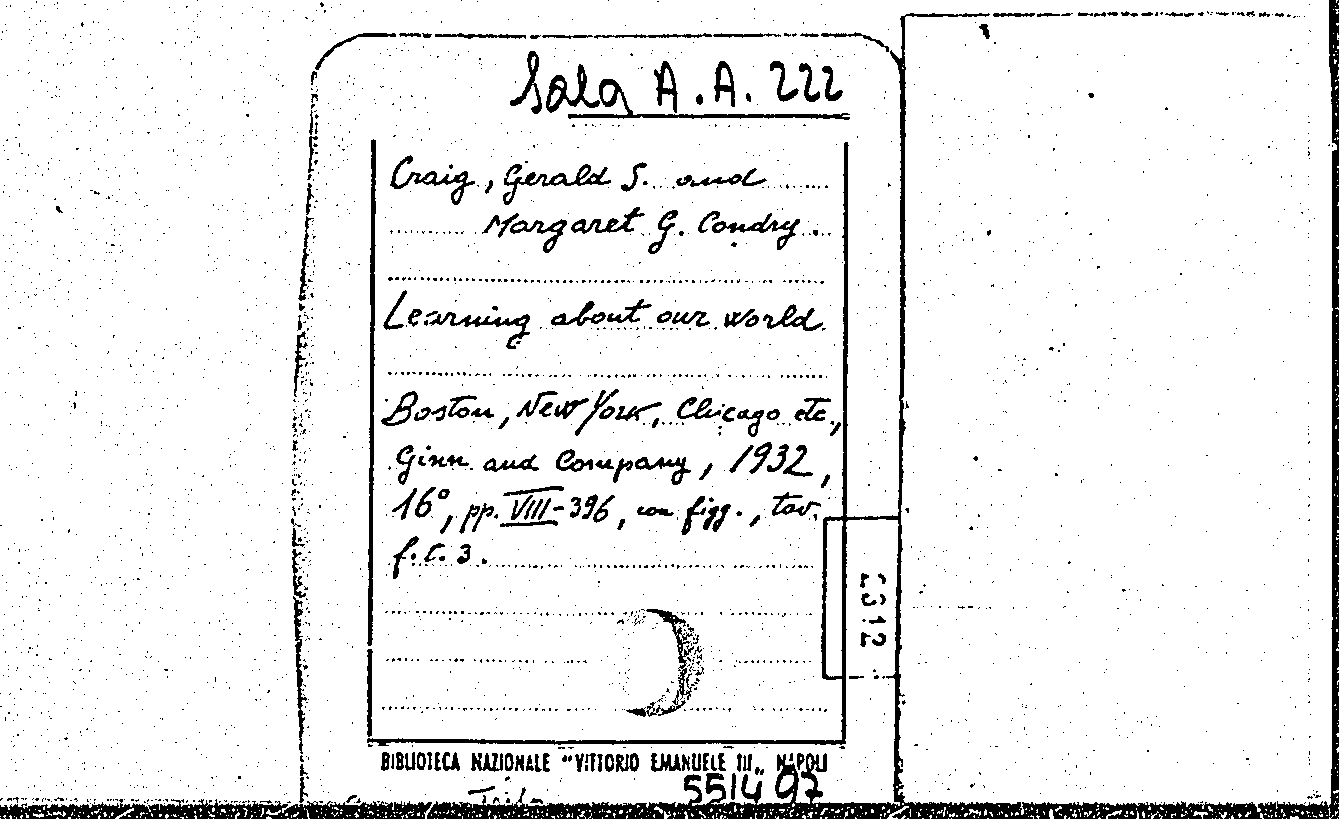 Sala A.A. 222
Craig, Gerald S. and
Margaret G. Condry.
Learning about our world
Boston, New York, Chicago etc,
Ginn and Company, 1932,
16°, pp. VIII-396, con figg., tav.
f.t. 3.
2312
BIBLIOTECA NAZIONALE "VITTORIO EMANUELE III„ NAPOLI
551497